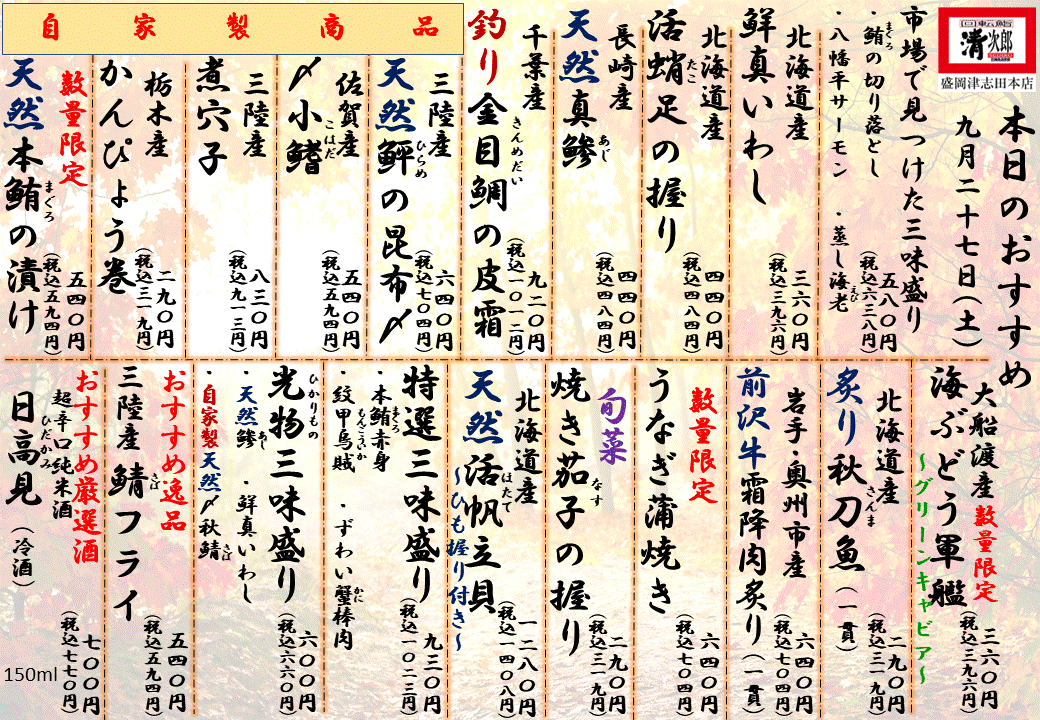 回転鮨
清次郎
盛岡津志田本店
本日のおすすめ
九月二十七日(土)
市場で見つけた三味盛り
・鮪の切り落とし
まぐろ
・八幡平サーモン
・蒸し海老
えび
五八〇円
(税込六三八円)
北海道産
鮮真いわし
三六〇円
(税込三九六円)
北海道産
活蛸足の握り
たこ
四四〇円
(税込四八四円)
長崎産
天然真鯵
あじ
四四〇円
(税込四八四円)
千葉産
釣り金目鯛の皮霜
きんめだい
九二〇円
(税込一〇一二円)
自家製商品
三陸産
天然鮃の昆布〆
ひらめ
六四〇円
(税込七〇四円)
佐賀産
〆小鰭
こはだ
五四〇円
(税込五九四円)
三陸産
煮穴子
八三〇円
(税込九一三円)
栃木産
かんぴょう巻
二九〇円
(税込三一九円)
数量限定
天然本鮪の漬け
まぐろ
五四〇円
(税込五九四円)
大船渡産
数量限定
海ぶどう軍艦
~グリーンキャビア~
三六〇円
(税込三九六円)
北海道産
炙り秋刀魚(一貫)
さんま
二九〇円
(税込三一九円)
岩手・奥州市産
前沢牛霜降肉炙り(一貫)
六四〇円
(税込七〇四円)
数量限定
うなぎ蒲焼き
六四〇円
(税込七〇四円)
旬菜
焼き茄子の握り
なす
二九〇円
(税込三一九円)
北海道産
天然活帆立貝
ほたて
~ひも握り付き~
一二八〇円
(税込一四〇八円)
特選三味盛り
・本鮪赤身
まぐろ
・紋甲烏賊
もんごういか
・ずわい蟹棒肉
かに
九三〇円
(税込一〇二三円)
光物三味盛り
ひかりもの
・天然鯵
あじ
・鮮真いわし
・自家製天然〆秋鯖
さば
六〇〇円
(税込六六〇円)
おすすめ逸品
三陸産鯖フライ
さば
五四〇円
(税込五九四円)
おすすめ厳選酒
超辛口純米酒
日高見(冷酒)
ひだかみ
七〇〇円
(税込七七〇円)
150ml